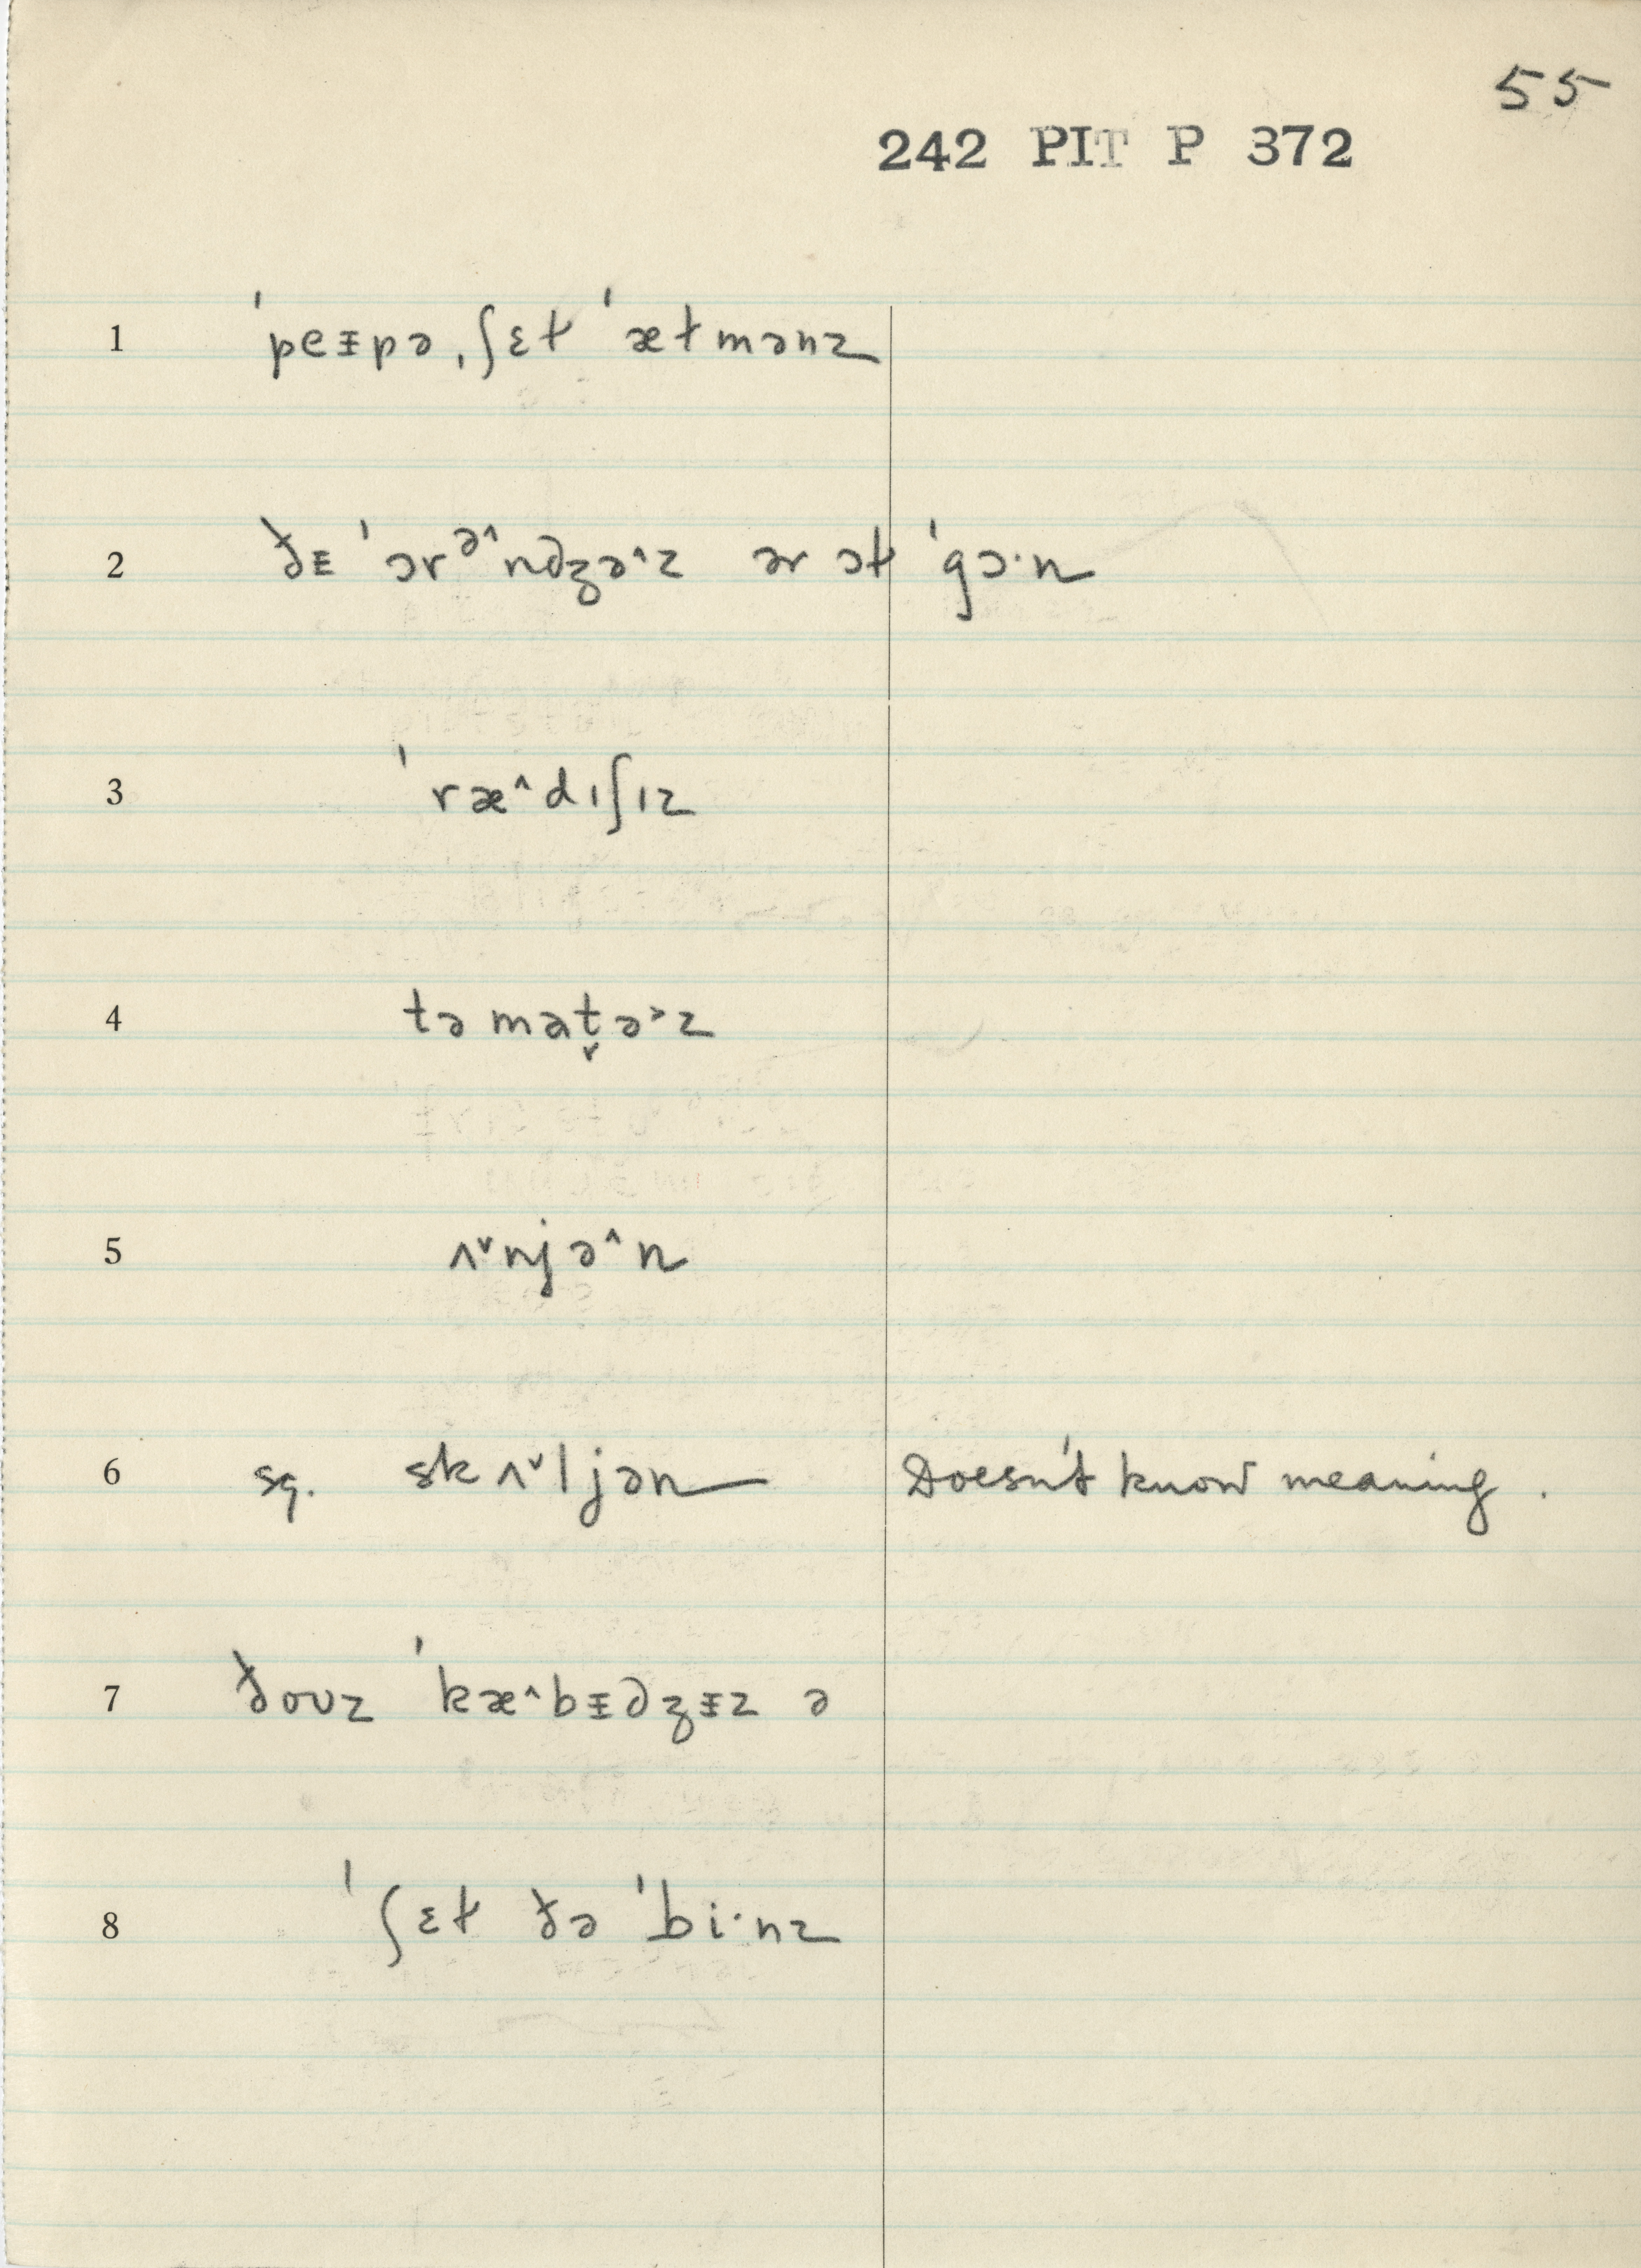 55
242 PIT P 372
1 ˈpeᵻpə ˌʃɛɫ ˈæɫmənz
2 ðᵻ ˈɔrə^ndʒə^z ər ɔɫ ˈgɔ·n
3 ˈræ^dɪʃɪz
4 təmat̬ə˃z
5 ʌ˅njə^n
6 sq. skʌ˅ljən Doesn't know meaning.
7 ðoʊz ˈkæ^bᵻdʒᵻz ə
8 ˈʃɛɫ ðə ˈbi·nz